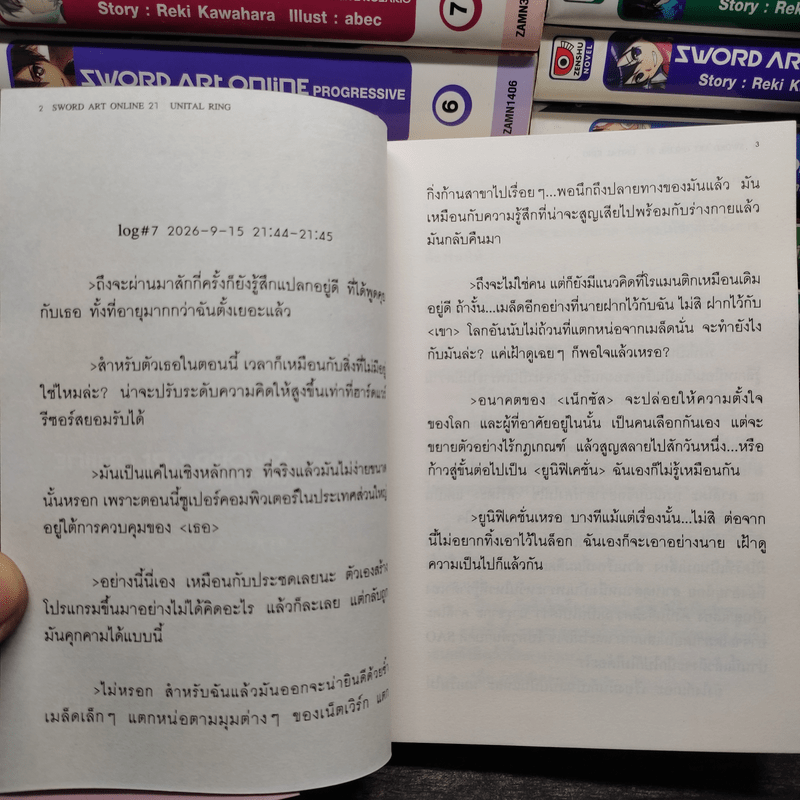 Story : Reki Kawahara Illust : abec
7
ZAMN
SWORD ART ONLINE PROGRESSIVE
6
ZAMN1406
Story : Rek
ZENSHU NOVEL
SWORD ART
Story : Reki Kawaha
2 SWORD ART ONLINE 21 UNITAL RING
log#7 2026-9-15 21:44-21:45
>ถึงจะผ่านมาสักกี่ครั้งก็ยังรู้สึกแปลกอยู่ดี ที่ได้พูดคุย
กับเธอ ทั้งที่อายุมากกว่าฉันตั้งเยอะแล้ว
>สำหรับตัวเธอในตอนนี้ เวลาก็เหมือนกับสิ่งที่ไม่มีอยู่
ใช่ไหมล่ะ? น่าจะปรับระดับความคิดให้สูงขึ้นเท่าที่ฮาร์ดแวร์
รีซอร์สยอมรับได้
>มันเป็นแค่ในเชิงหลักการ ที่จริงแล้วมันไม่ง่ายขนาด
นั้นหรอก เพราะตอนนี้ซูเปอร์คอมพิวเตอร์ในประเทศส่วนใหญ่
อยู่ใต้การควบคุมของ <เธอ>
>อย่างนี้นี่เอง เหมือนกับประชดเลยนะ ตัวเองสร้าง
โปรแกรมขึ้นมาอย่างไม่ได้คิดอะไร แล้วก็ละเลย แต่กลับถูก
มันคุกคามได้แบบนี้
>ไม่หรอก สำหรับฉันแล้วมันออกจะน่ายินดีด้วยซ้ำ
เมล็ดเล็กๆ แตกหน่อตามมุมต่างๆ ของเน็ตเวิร์ก แตก
3
กิ่งก้านสาขาไปเรื่อยๆ...พอนึกถึงปลายทางของมันแล้ว มัน
เหมือนกับความรู้สึกที่น่าจะสูญเสียไปพร้อมกับร่างกายแล้ว
มันกลับคืนมา
>ถึงจะไม่ใช่คน แต่ก็ยังมีแนวคิดที่โรแมนติกเหมือนเดิม
อยู่ดี ถ้างั้น...เมล็ดอีกอย่างที่นายฝากไว้กับฉัน ไม่สิ ฝากไว้กับ
<เขา> โลกอันนับไม่ถ้วนที่แตกหน่อจากเมล็ดนั่น จะทำยังไง
กับมันล่ะ? แค่เฝ้าดูเฉยๆ ก็พอใจแล้วเหรอ?
>อนาคตของ <เน็กซัส> จะปล่อยให้ความตั้งใจ
ของโลก และผู้ที่อาศัยอยู่ในนั้น เป็นคนเลือกกันเอง แต่จะ
ขยายตัวอย่างไร้กฎเกณฑ์ แล้วสูญสลายไปสักวันหนึ่ง...หรือ
ก้าวสู่ขั้นต่อไปเป็น <ยูนิฟิเคชั่น> ฉันเองก็ไม่รู้เหมือนกัน
>ยูนิฟิเคชั่นเหรอ บางทีแม้แต่เรื่องนั้น...ไม่สิ ต่อจาก
นี้ไม่อยากทิ้งเอาไว้ในล็อก ฉันเองก็จะเอาอย่างนาย เฝ้าดู
ความเป็นไปก็แล้วกัน